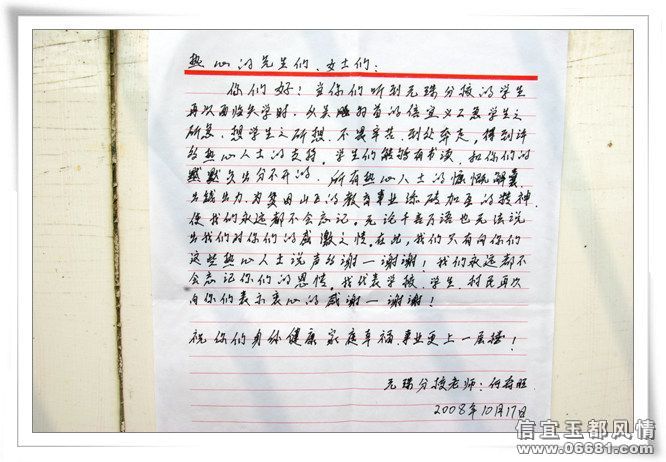 热心的先生们、女士们:
你们好!当你们听到元珠分校的学生
再次面临失学时,以吴 为首的信宜义工急学生之
所急,想学生之所想,不畏辛苦,到处奔走,得到许
多热心人士的支持,学生们能够有书读,和你们的
默默支出分不开的,所有热心人士的慷慨解囊
出钱出力,为贫困山区的教育事业添砖加瓦的精神,
使我们永远都不会忘记,无论千言万语也无法说
出我们对你们的感激之情,在此,我们只有向你们
这些热心人士说声多谢—谢谢!我们永远都不
会忘记你们的恩情,我代表学校、学生、村民再次
向你们表示衷心的感谢—谢谢!
祝你们身体健康 家庭幸福 事业更上一层楼!
元珠分校老师:何
2008年10月17日
信宜玉都风情
www.06681.com